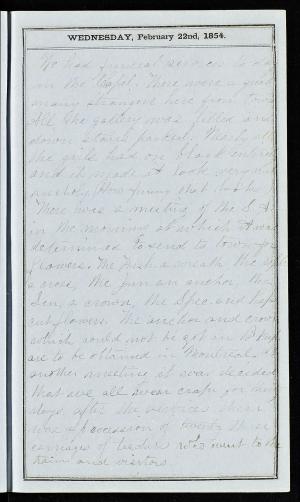 WEDNESDAY, February 22nd, 1854.
We had funeral services to day
in the Chapel. There were a great
many strangers here from town
All the gallery was filled and
down stairs packed. Nearly all
the girls had on black entirely
and it made it look very
There was a meeting of the S. A.
in the morning at which it was
determined to send to town for
flowers. The Fresh. a wreath, the
a cross, the Jun. an anchor, the
Sen. a crown, the Spec. and
cut flowers. The anchor and crown
which could not be got in
are to be obtained in Montreal. At
another meeting it was decided
that we all wear crape for
days. after the services there
was a procession of
carriages of who went to the
train and visitors.